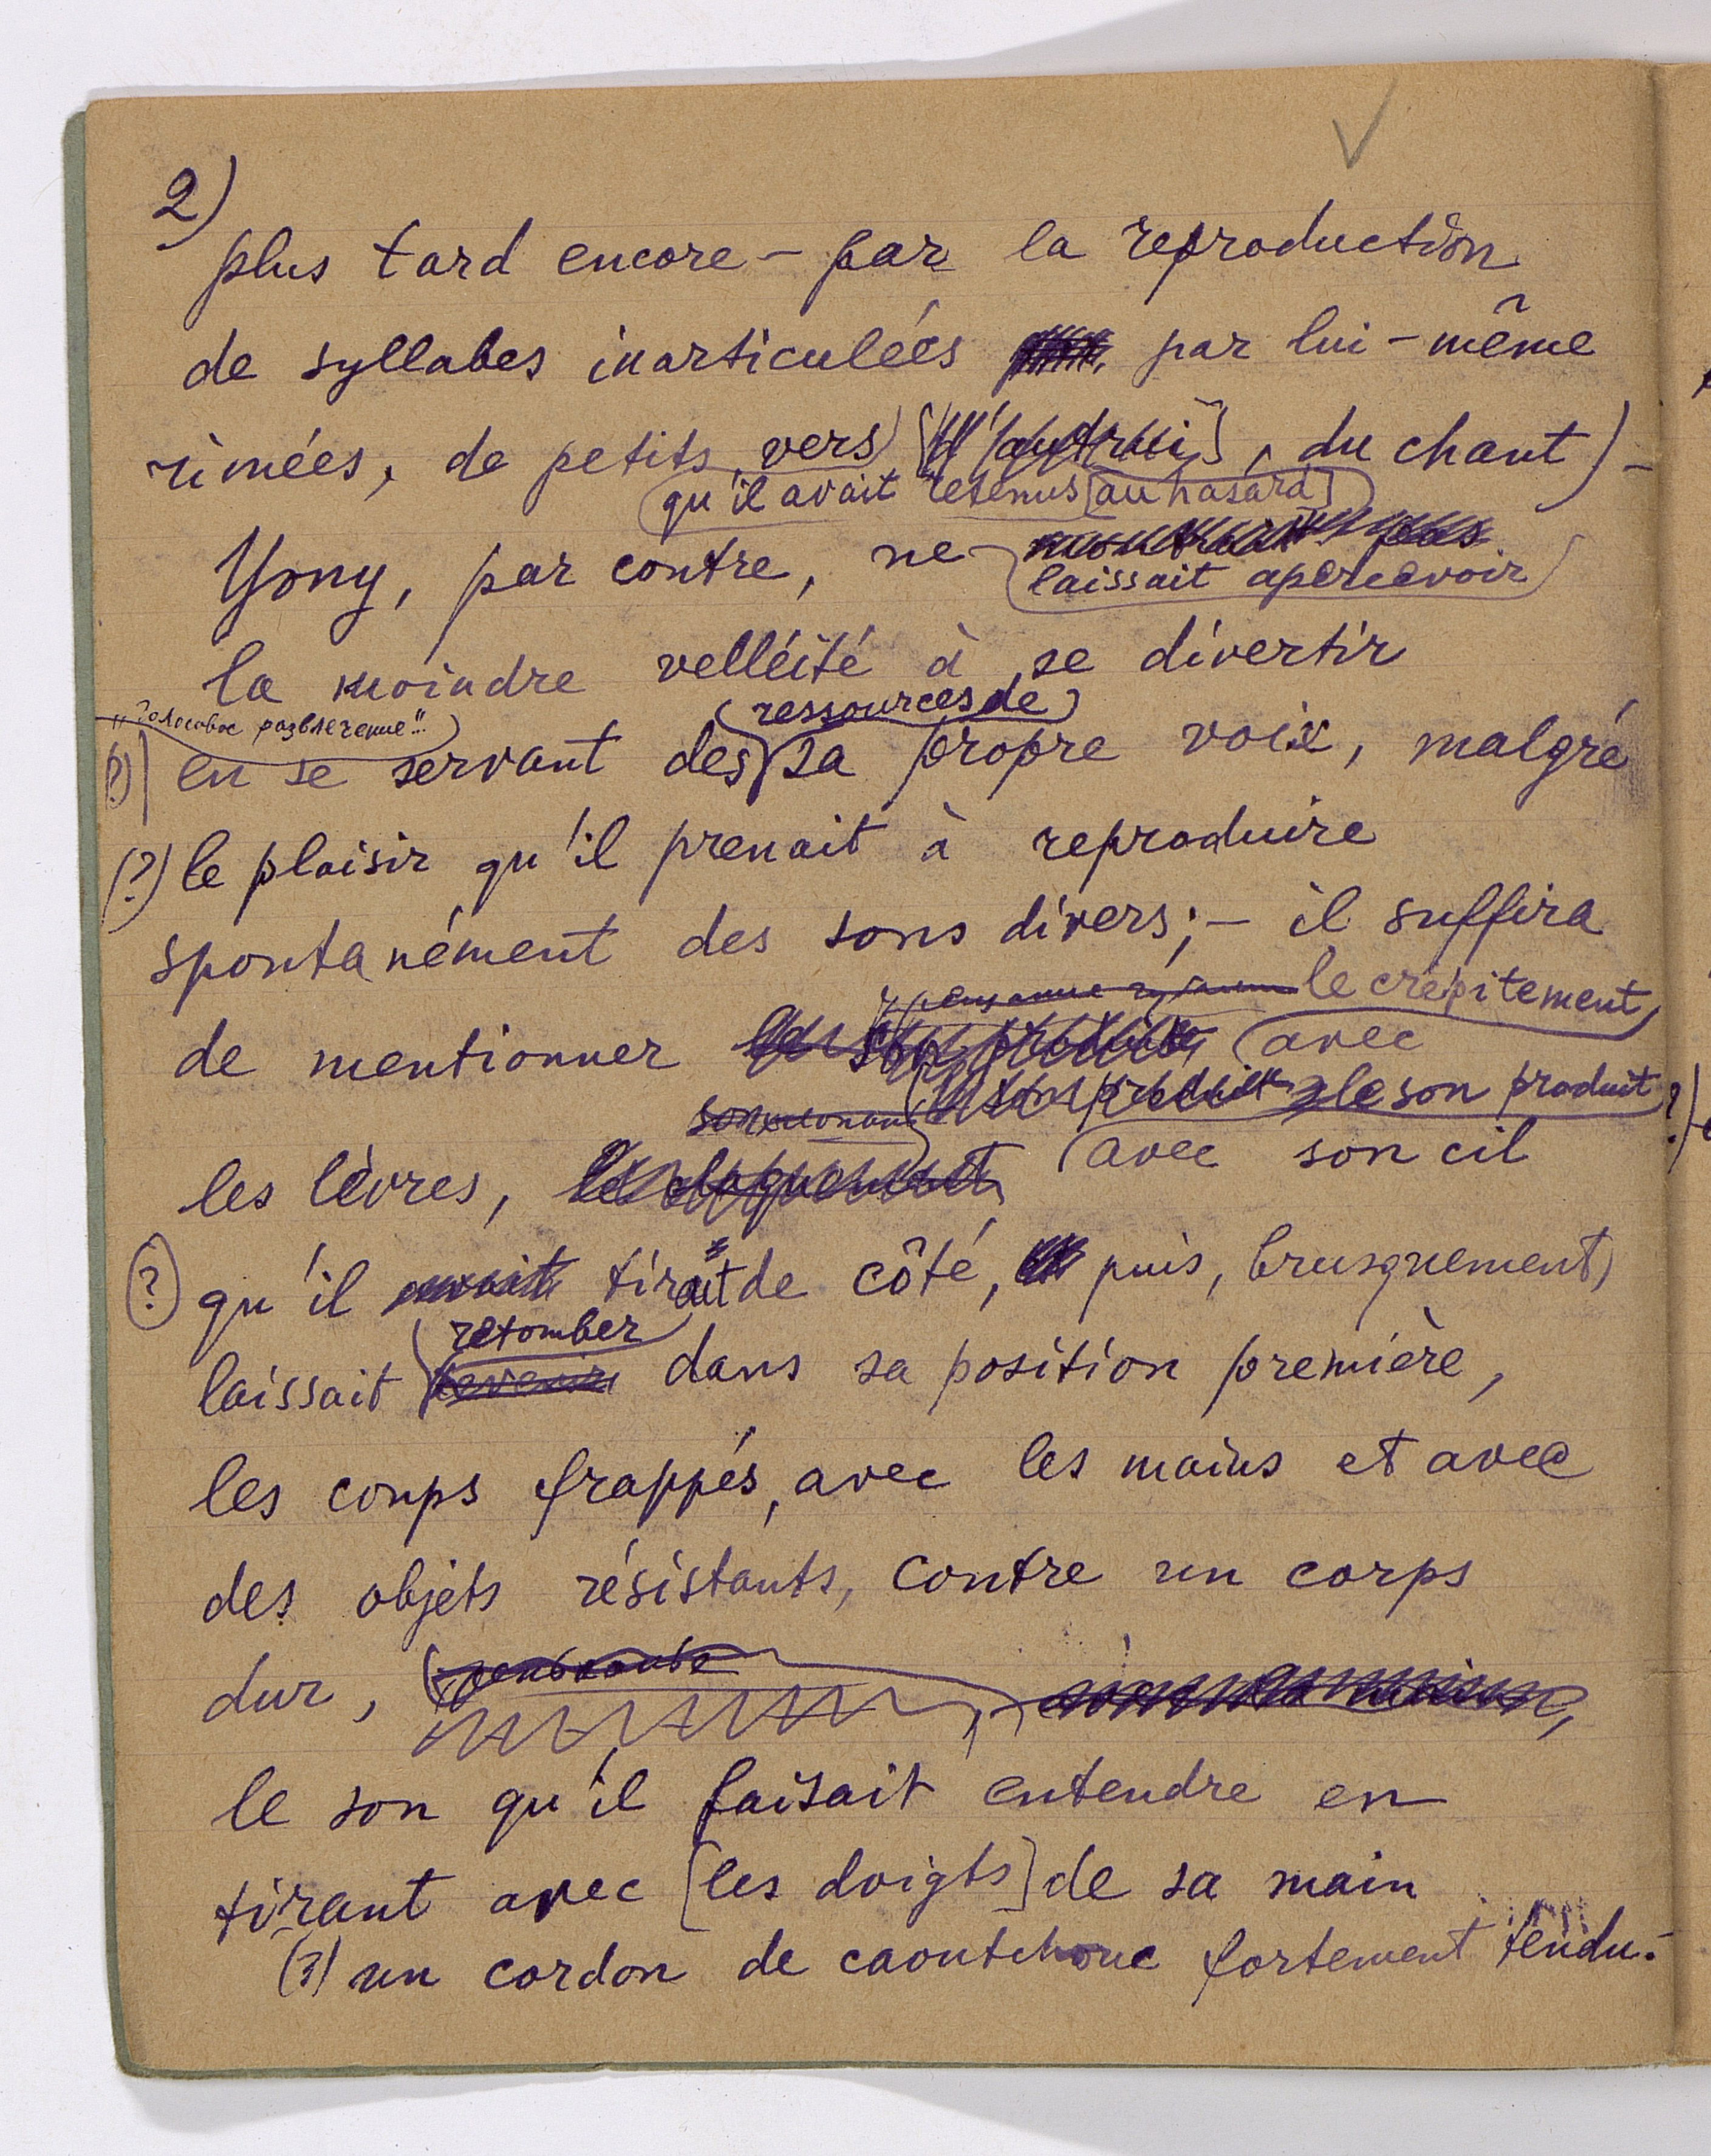 2)
plus tard encore – par la reproduction
de syllabes inarticulées par lui-même
rimées, de petits vers [d'autrui], du chant) –
qu'il avait retenus [au hasard]
Yony, par contre, ne
laissait apercevoir
la moindre velléité à se divertir
„голосовое развлечение“ ressources de
(?) en se servant des sa propre voix, malgré
(?) le plaisir qu'il prenait à reproduire
spontanément des sons divers; – il suffira
le crépitement
de mentionner avec
le son produit ?)
les lèvres, le claquement avec son cil
(?) qu'il avait tirait de côté, puis, brusquement
retomber
laissait revenir dans sa position première,
les coups frappés, avec les mains et avec
des objets résistants, contre un corps
dur,
le son qu'il faisait entendre en
tirant avec [les doigts] de sa main
(?) un cordon de caoutchouc fortement tendu.